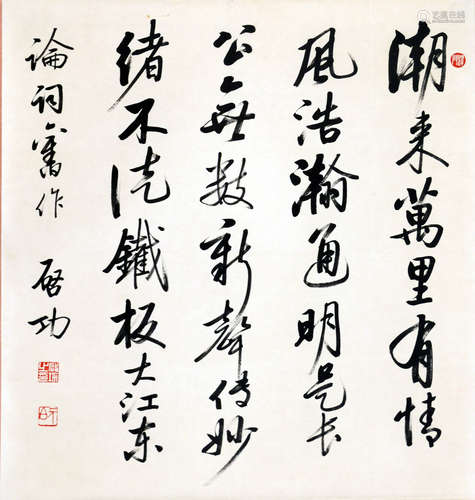 潮来萬里有情
風浩瀚通明是长
公无数新聲传妙
绪不凭鐵板大江东
論词舊作
啓功